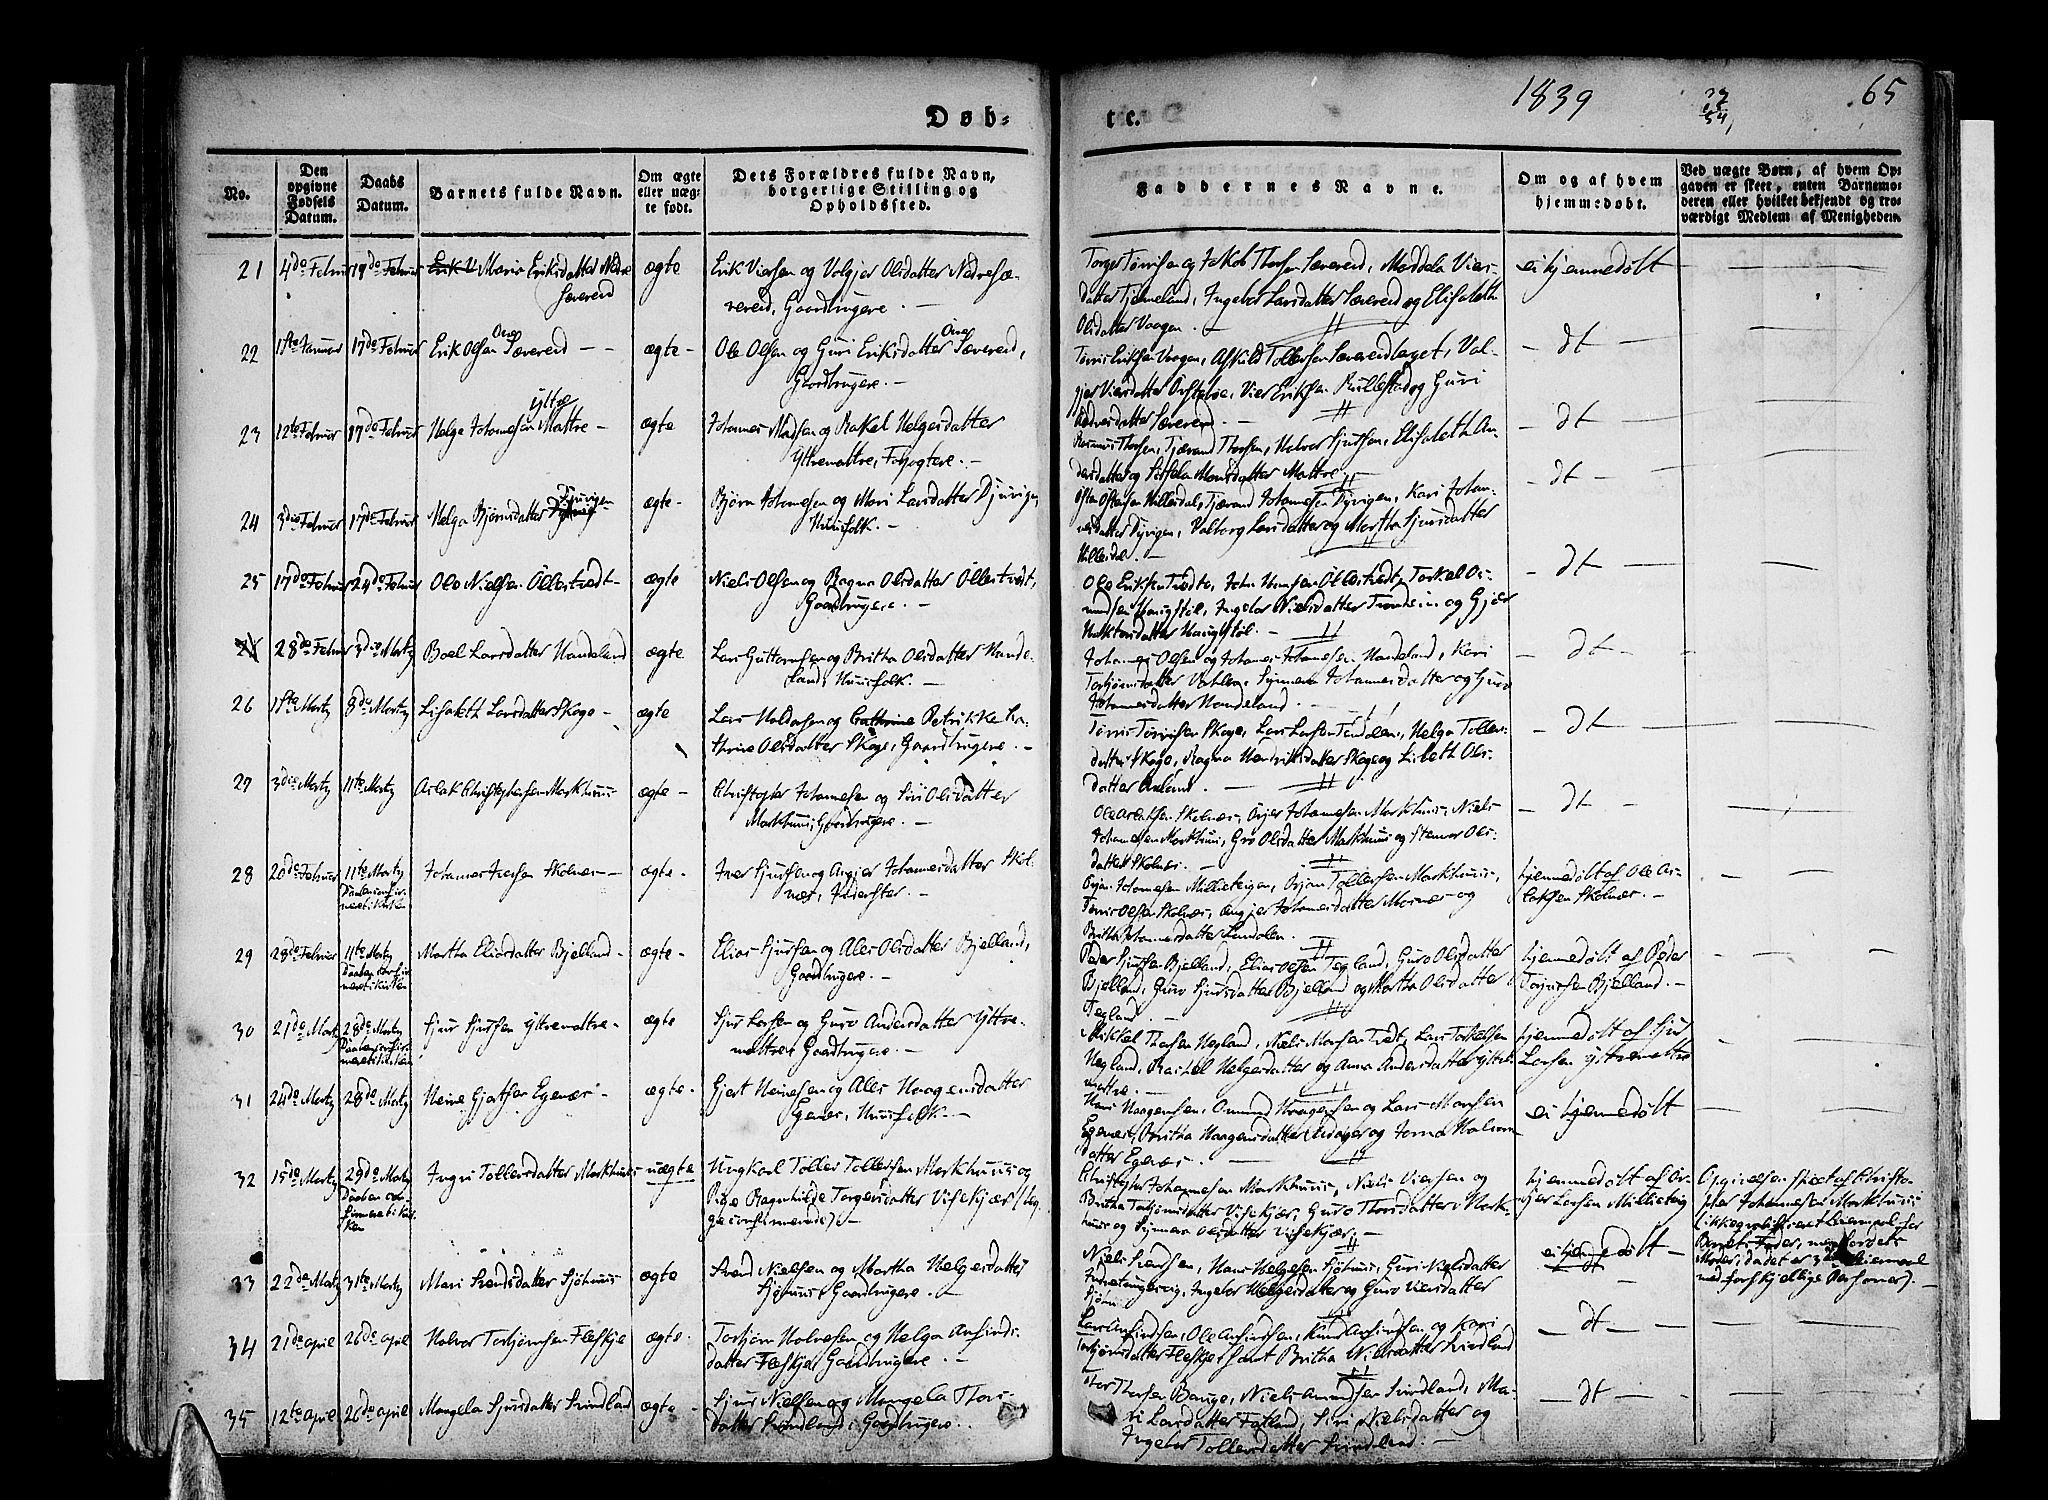 1839
27
54,
65
Døb-
te.
No.
Den opgivne Fødsels Datum.
Daabs Datum.
Barnets fulde Navn.
Om ægte eller uægte født.
Dets Forældres fulde Navn, borgerlige Stilling og Opholdssted.
Faddernes Navne.
Om og af hvem hjemmedøbt.
Ved uægte Børn, af hvem Opgaven er skeet, enten Barnemoderen eller hvilket bekjendt og troværdigt Medlem af Menigheden.
21 4de Februar 19de Februar Maria Eriksdatter Nedre ægte Erik Viersen og Valgjer Olsdatter Nedresæ-
Sævereid
vereid, Gaardbrugere. —
Torger Tørrisen og Jakob Thorsen Sævereid, Maddela Viers-
datter Tjerneland, Ingebor Larsdatter Sævereid og Elisabeth
Olsdatter Vaagen. —
ei hjemmedøbt
22 1ste Januar 17de Februar Erik Olsen Øvre Sævereid — ægte — Ole Olsen og Guri Eriksdatter Øvre Sævereid,
Gaardbrugere. —
Tørris Eriksen Vaagen, Tollefsen Sævereid, Val-
gjer Viersdatter, Vier Eriksen Rullestad og Guri
datter Sævereid. —
— dt —
23 12te Februar 17de Februar Helge Johannesen Yttre Mattre — ægte Johannes Madsen og Rakel Helgesdatter
Yttremattre,
Rasmus Thorsen, Tjærand Thorsen, Halvor Sjursen, Elisabeth An-
dersdatter og Sissela Monsdatter Mattre. —
— dt —
24 3die Februar 17de Februar Helga Bjørnsdatter Djuvigen ægte — Bjørn Johannesen og Mari Larsdatter Djuvigen,
Huusfolk. —
Østen Østensen Hillesdal, Tjærand Johannesen Dyvigen, Kari Johan-
nesdatter Dyvigen, Valborg Larsdatter og Martha Sjursdatter
Hillesdal. —
— dt —
25 17de Februar 24de Februar Ole Nielsen Øllestvedt — ægte Niels Olsen og Ragna Olsdatter Ølfestvedt,
Gaardbrugere. —
Ole Eriksen Tvedte, John Hansen Ølfestvedt, Torkel
Ingebor Nielsdatter og
datter Haugstøl. —
— dt —
28de Februar 3die Martz Boel Larsdatter Handeland ægte Lars Guttormsen og Britha Olsdatter Hande-
land, Huusfolk. —
Johannes Olsen og Johannes Johannesen Handeland, Kari
Torbjørnsdatter, Synneva Johannesdatter og Guro
Johannesdatter Handeland. —
— dt —
26 1ste Martz 8de Martz Lisabeth Larsdatter Skage — ægte Lars Haldorsen og Petrikke Ca-
thrine Olsdatter Skage, Gaardbrugere. —
Tørris Tørrisen Skage, Lars Larsen, Helga Tollevs-
datter Skage, Ragna Hendriksdatter Skage og Lisbeth Ols-
datter. —
— dt —
27 3die Martz 11te Martz Aslak Christophersen Markhuus ægte — Christopher Johannesen og Siri Olsdatter
Markhuus, Gaardbrugere. —
Ole Aslaksen Skolnæs, Johannesen Markhuus, Niels
Johannesen Markhuus, Gro Olsdatter Markhuus og Ols-
datter Skolnæs. —
— dt —
28 20de Februar 11te Martz Johannes Iversen Skolnæs — ægte — Iver Sjursen og Angjer Johannesdatter Skol-
Daaben confirmeret i Kirken
næs, Inderster. —
Johannesen Millieteigen, Tollevsen Markhuus,
Tørris Olsen Skolnæs, Angjer Johannesdatter og
Britha Johannesdatter. —
hjemmedøbt af Ole As-
laksen Skolnæs. —
29 28de Februar 11te Martz Martha Eliasdatter Bjelland — ægte — Elias Sjursen og Ales Olsdatter Bjelland,
Daaben confirmeret i Kirken
Gaardbrugere. —
Peder Sjursen Bjelland, Elias Olsen Tegland, Guro Olsdatter
Bjelland, Guro Sjursdatter Bjelland og Martha Olsdatter
Tegland. —
hjemmedøbt af Peder
Bjelland. —
30 21de Martz 28de Martz Sjur Sjursen Yttremattre — ægte Sjur Larsen og Guro Andersdatter Yttre-
Daaben confirmeret i Kirken
mattre Gaardbrugere. —
Mikkel Thorsen Hegland, Niels Monsen Tvedt, Lars Torkelsen
Hegland, Rachel Helgesdatter og Anna Andersdatter Yttre-
mattre. —
hjemmedøbt af Sjur
Larsen Yttremattre
31 24de Martz 28de Martz Heine Gjertsen Egenæs — ægte — Gjert Heinesen og Ales Haagensdatter
Egenæs, Huusfolk. —
Hans Haagensen, Omund Haagensen og Lars Monsen
Egenæs, Britha Haagensdatter og
datter Egenæs. —
ei hjemmedøbt
32 15de Martz 29de Martz Ingri Tollevsdatter Markhuus uægte Ungkarl Tollev Tollevsen Markhuus og
Daaben confirmeret i Kirken
Pige Ragnhilde Torgersdatter Vissekjær (beg-
ge confirmerede). —
Christopher Johannesen Markhuus, Niels Viersen og
Britha Torbjørnsdatter Vissekjær, Guro Thorsdatter Mark-
huus og Synneva Olsdatter Vissekjær. —
hjemmedøbt af
Larsen Millieteig
Opgivelsen skeet af Christo-
pher Johannesen Markhuus
Leiermaal for
Barnets Fader, men for dets
Moder, da det er 3die Leiermaal
med forskjellige Personer). —
33 22de Martz 31te Martz Mari Svendsdatter Sjøhuus ægte Svend Nielsen og Martha Helgesdatter
Sjøhuus, Gaardbrugere. —
Niels Svendsen, Hans Helgesen Sjøhuus, Guri Nielsdatter
Ingebor Helgesdatter og Guro Viersdatter
ei hjemmedøbt —
dt
34 21de April 26de April Halvor Torbjørnsen Fleskje ægte — Torbjørn Halvorsen og Helga Arfinds-
datter Fleskje, Gaardbrugere. —
Lars Arfindsen, Ole Arfindsen, Knud Arfindsen og Kari
Torbjørnsdatter Fleskje samt Britha Nielsdatter Svindland
— dt —
35 12te April 26de April Mangela Sjursdatter Svindland ægte — Sjur Nielsen og Mangela Thors-
datter Svindland, Gaardbrugere. —
Thor Thorsen Bauge, Niels Amundsen Svindland, Ma-
ri Larsdatter Fatland, Siri Nielsdatter og
Ingebor Tollevsdatter Svindland. —
— dt —